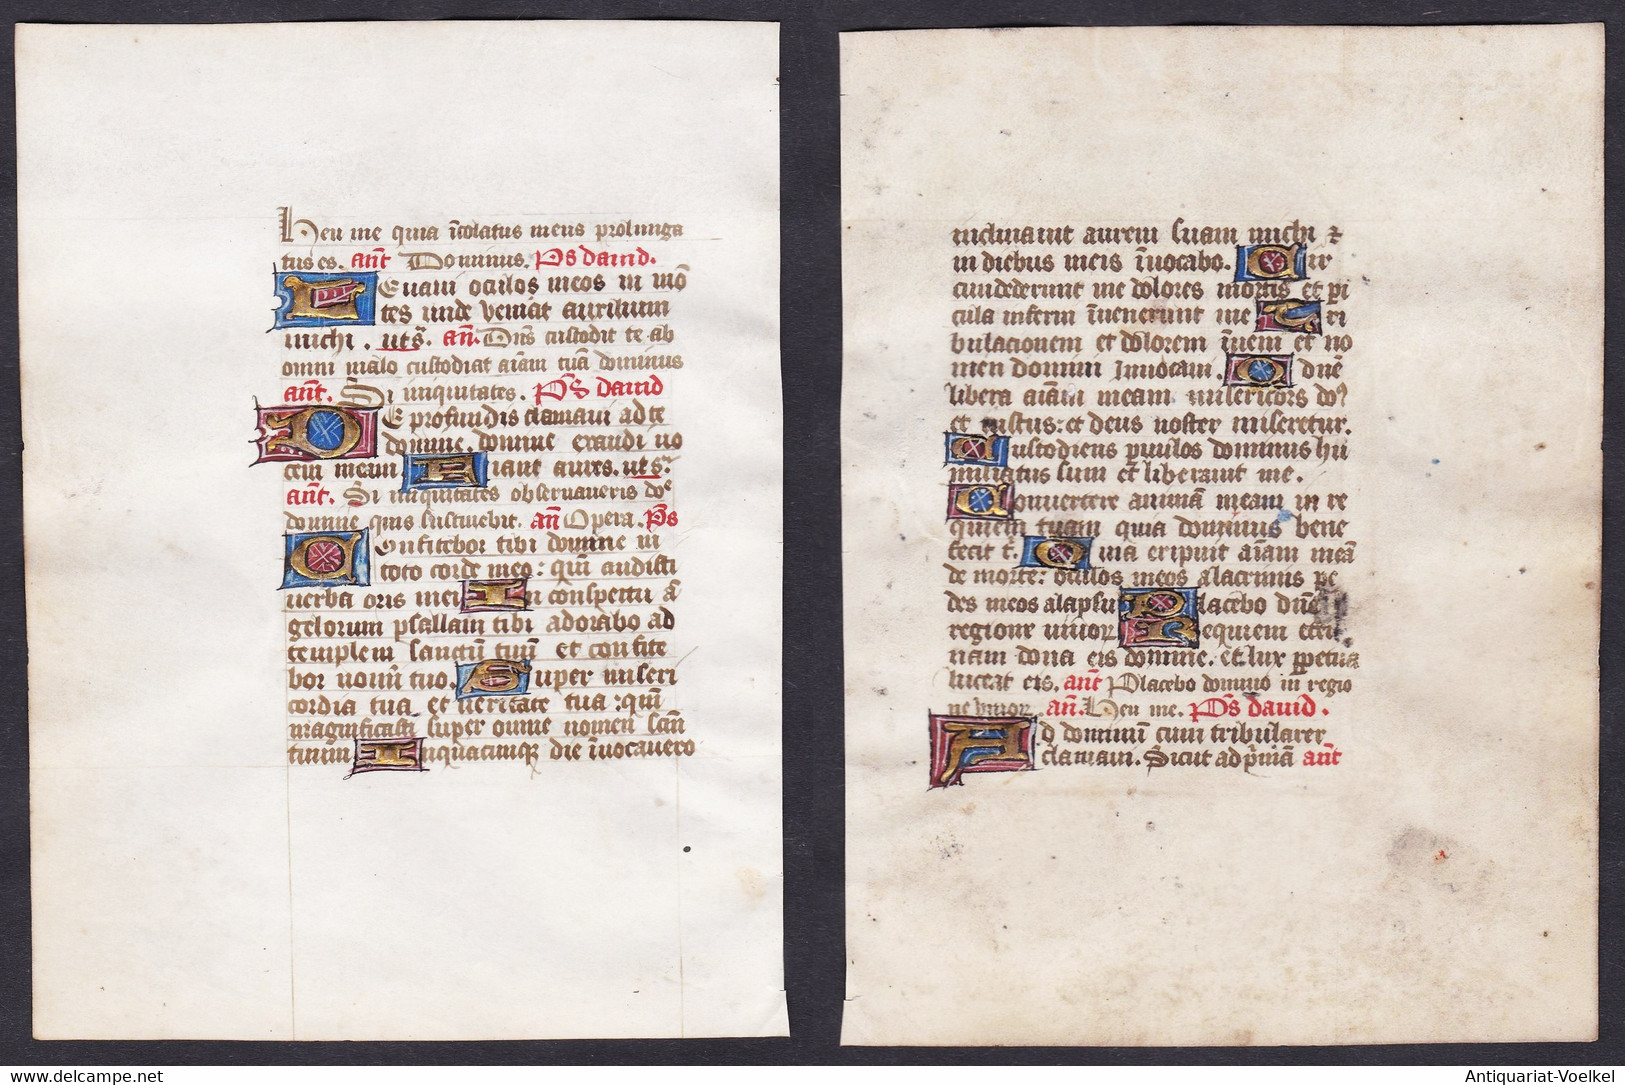 Heu me quia īcolatus meus prolunga
tus es. añt Dominus. Ps dauid.
Leuaui oculos meos in mō
tes unde veniat auxilium
michi . ut sͣ. añ. Dns custodit te ab
omni malo custodiat aīam tuā dominus
añt. Si iniquitates. Ps dauid
De profundis clamaui ad te
domine. domine exaudi uo
cem meam Fiant aures. ut sͣ.
añt. Si iniquitates obseruaueris doͤ
domine quis sustinebit. añ Opera. Ps
Confitebor tibi domine in
toto corde meo: qm̄ audisti
uerba oris mei In conspectu ā
gelorum psallam tibi adorabo ad
templem sanctū tuū et confite
bor noī tuo. Super miseri
cordia tua et ueritate tua : qm̄
magnificasti super omne nomen scm̄
tuum In quacumqz die īuocauero
inclinauit aurem suam michi ⁊
in diebus meis īuocabo. Cir
cumdederunt me dolores mortis et pi
cula inferni īuenerunt me Tri
bulacionem et dolorem īueni et no
men domini Innocaui. O dnē
libera aīam meam misericors doꝰ
et iustus: et deus noster miseretur.
Custodiens paruulos dominus hu
miliatus sum et liberauit me.
Conuertere animā meam in re
quiem tuam quia dominus bene
fecit t. Quia eripuit aīam meā
de morte: oculos meos alacrimis pe
des meos alapsu Placebo dnō
regione uiuoꝝ Requiem eter
nam dona eis domine. et lux ppetua
luceat eis. añt Placebo domino in regio
ne uiuoꝝ. añ. Heu me. Ps dauid.
Ad dominum cum tribularer
clamaui. Sicut ad pͥmā añt
Antiquariat-Voelkel
www.delcampe.net